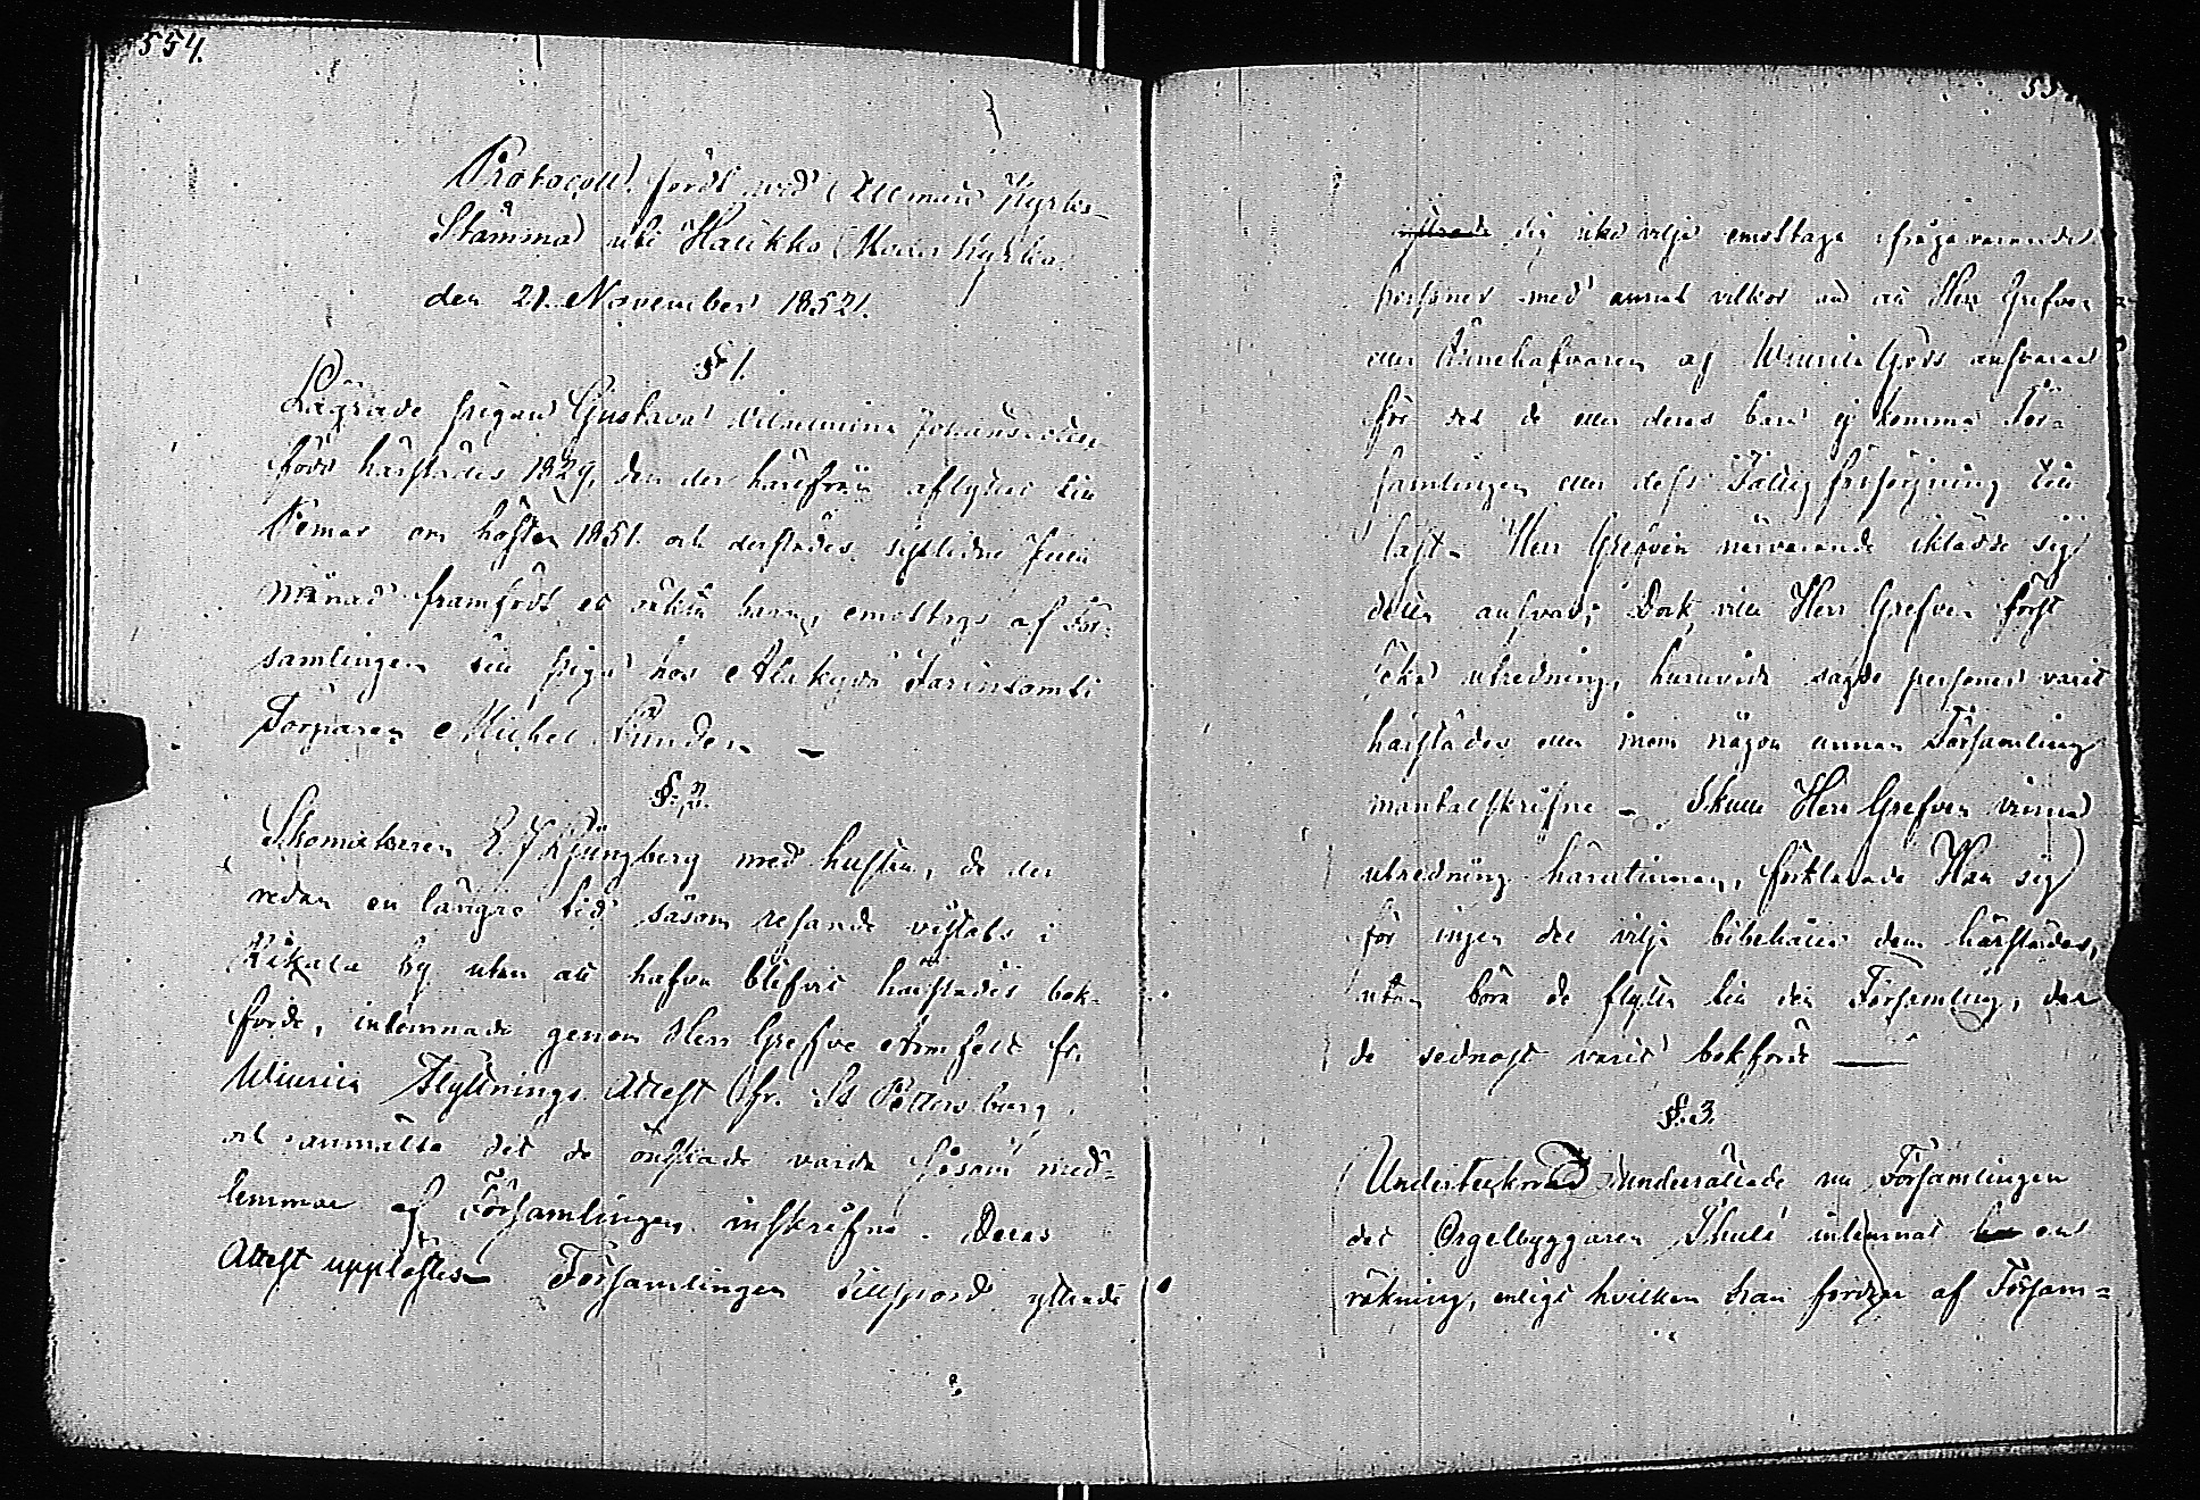 554.
Protocoll, fördt wid Allmän Kyrko-
Stämma uti Halikko Moder Kyrka
den 21. November 1852.
§ 1.
Lägrade pigan Gustava Vilhelmina Johansdotter
född härstädes 1829, den der härifrån aflyttat till
Pemar om hösten 1851. och derstädes sistlidne Juni
månad framfödt ett oäkta barn, emottogs af För-
samlingen till piga hos Alakylä
Torparen Michel Lindén —
§. 2.
Skomakaren E. J. Ljungberg med hustru, de der
redan en längre tid såsom resande vistats i
Rikala by utan att hafva blifvit härstädes bok-
förde, inlemnade genom Herr Grefve Armfelt fr.
Wiurila Flyttnings Attest fr. St Pettersburg,
och anmälte det de önskade varda såsom med-
lemmar af Församlingen inskrifne. Deras
Attest upplästes Församlingen tillspord yttrade
sig icke vilja emottaga ifrågavarande
personer med annat vilkor än att Herr Grefven
eller Innehafvaren af Wiurila Gård ansvarar
för det de eller deras barn ej komma För-
samlingen eller dess Fattigförsörjning till
last. Herr Grefven närvarande iklädde sig
detta ansvar; Dock, ville Herr Grefven först
söka utredning, huruvida sagde personer varit
härstädes eller inom någon annan Församling
mantalskrifne — Skulle Herr Grefven vinna
utredning härutinnan, förklarade Han sig
för ingen del vilja bibehålla dem härstädes,
utan böra de flytta till den Församling, der
de sednast varit bokförde —
§. 3.
Undertecknad underrättade nu Församlingen
det Orgelbyggaren Thulé inlemnat en
räkning, enligt hvilken han fordrar af Försam=